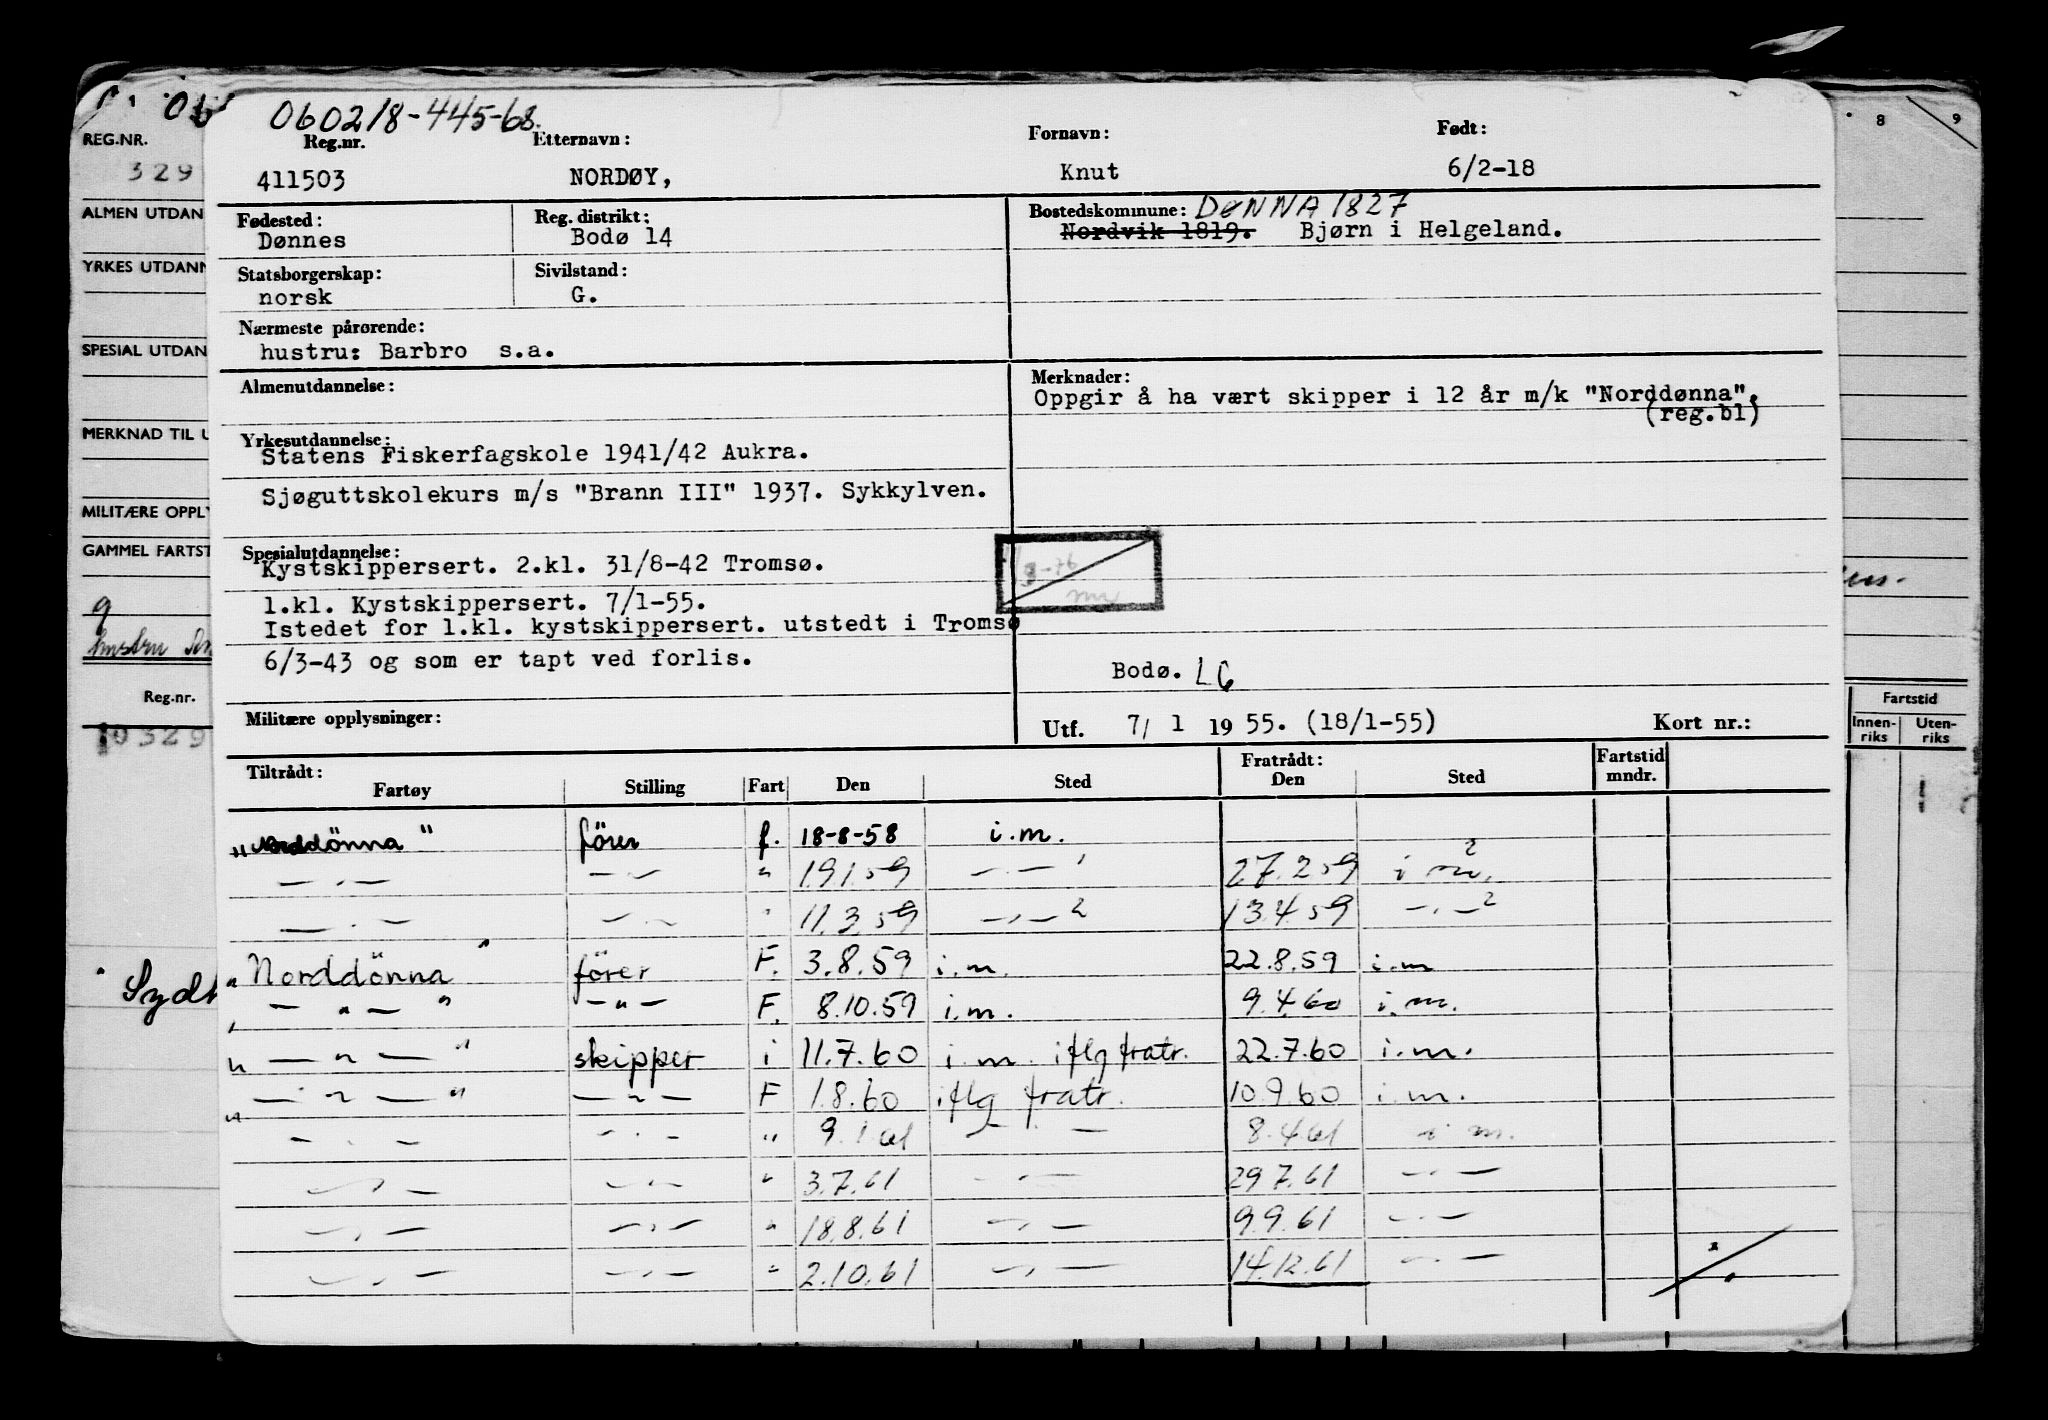 060218-445-68.
Reg.nr. Etternavn: Fornavn: Født:
411503 NORDØY, Knut 6/2-18
Fødested: Reg. distrikt: Bostedskommune: DØNNA 1827
Dønnes Bodø 14 Nordvik 1819. Bjørn i Helgeland.
Statsborgerskap: Sivilstand:
norsk G.
Nærmeste pårørende:
hustru: Barbro s.a.
Almenutdannelse:
Merknader:
Oppgir å ha vært skipper i 12 år m/k "Norddønna",
(reg.bl)
Yrkesutdannelse:
Statens Fiskerfagskole 1941/42 Aukra.
Sjøguttskolekurs m/s "Brann III" 1937. Sykkylven.
Spesialutdannelse:
Kystskippersert. 2.kl. 31/8-42 Tromsø.
1.kl. Kystskippersert. 7/1-55.
Istedet for 1.kl. kystskippersert. utstedt i Tromsø
6/3-43 og som er tapt ved forlis.
Bodø. LG
Militære opplysninger:
Utf. 7/ 1 19 55. (18/1-55) Kort nr.:
Tiltrådt: Fratrådt: Fartstid
Fartøy Stilling Fart Den Sted Den Sted mndr.
„Norddönna" förer f. 18-8-58 i.m.
— „ — — „ — " 19.1.59 — „ — 27.2.59 i m.
— „ — — „ — " 11.3.59 — „ — 2 13.4.59 — „ — 2
„Norddönna" förer F. 3.8.59 i.m. 22.8.59 i.m
„ — " — " — " — F. 8.10.59 i.m. 9.4.60 i.m.
„ — " — " skipper i 11.7.60 i.m. iflg fratr. 22.7.60 i.m.
„ — " — " — " — F 1.8.60 iflg fratr. 10.9.60 i.m.
— „ — — „ — " 9.1.61 — „ — 8.4.61 i m.
— „ — — „ — " 3.7.61 — „ — 29.7.61 — „ —
— „ — — „ — " 18.8.61 — „ — 9.9.61 — „ —
— „ — — „ — " 2.10.61 — „ — 14.12.61 — „ —
REG.NR.
329
ALMEN UTDAN
YRKES UTDANN
SPESIAL UTDAN
MERKNAD TIL U
MILITÆRE OPPLY
GAMMEL FARTST
g
hustru
Reg.nr.
10329
8 9
Fartstid
Innen-riks Uten-riks
1